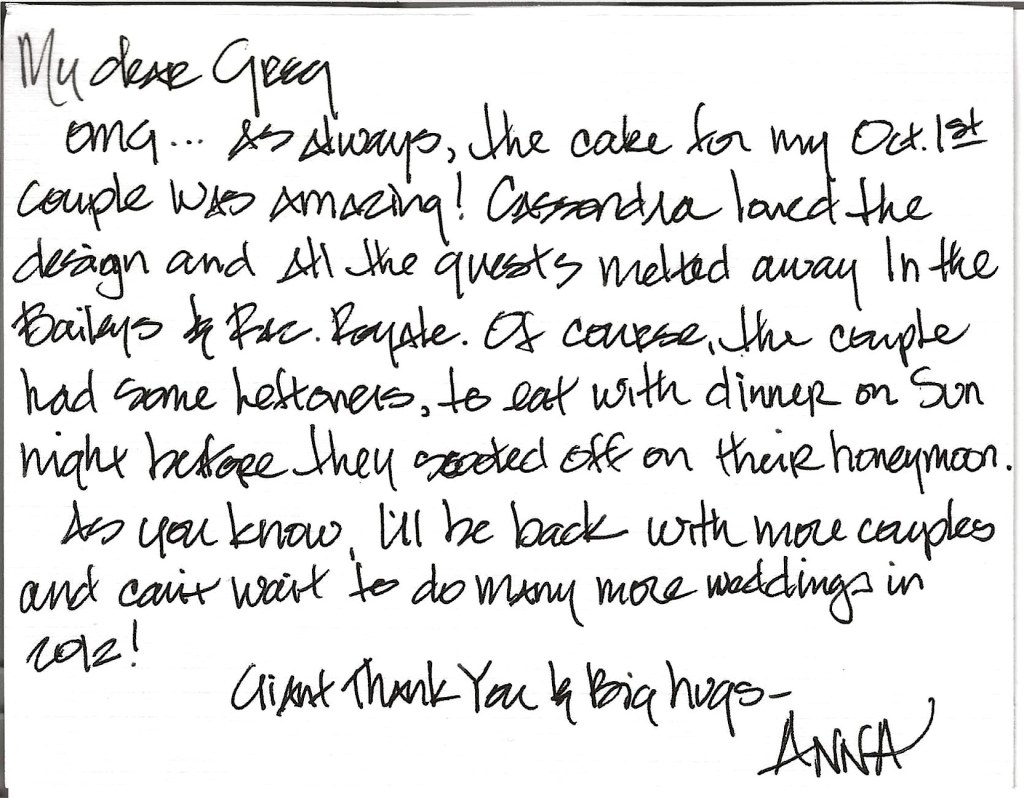 My dear Greg
OMG... As Always, the cake for my Oct. 1st
couple was amazing! Cassandra loved the
design and All the guests melted away In the
Baileys & Ras. Royale. Of course, the couple
had some leftovers, to eat with dinner on Sun
night before they scooted off on their honeymoon.
As you know, I'll be back with more couples
and can't wait to do many more weddings in
2012!
Giant Thank You & Big hugs-
ANNA